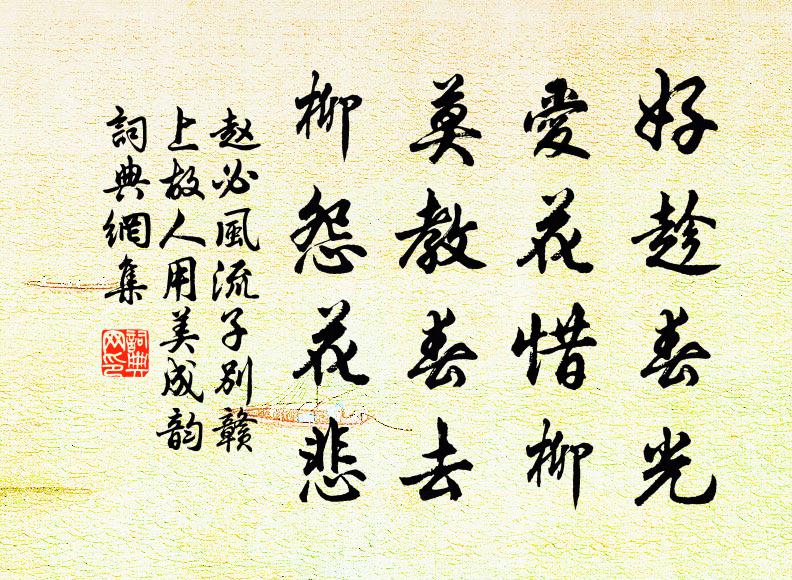 好趁春光
愛花惜柳
莫教春去
柳怨花悲
赵必風流子别贛
上故人用美成韵
詞典網集
詞典
网印